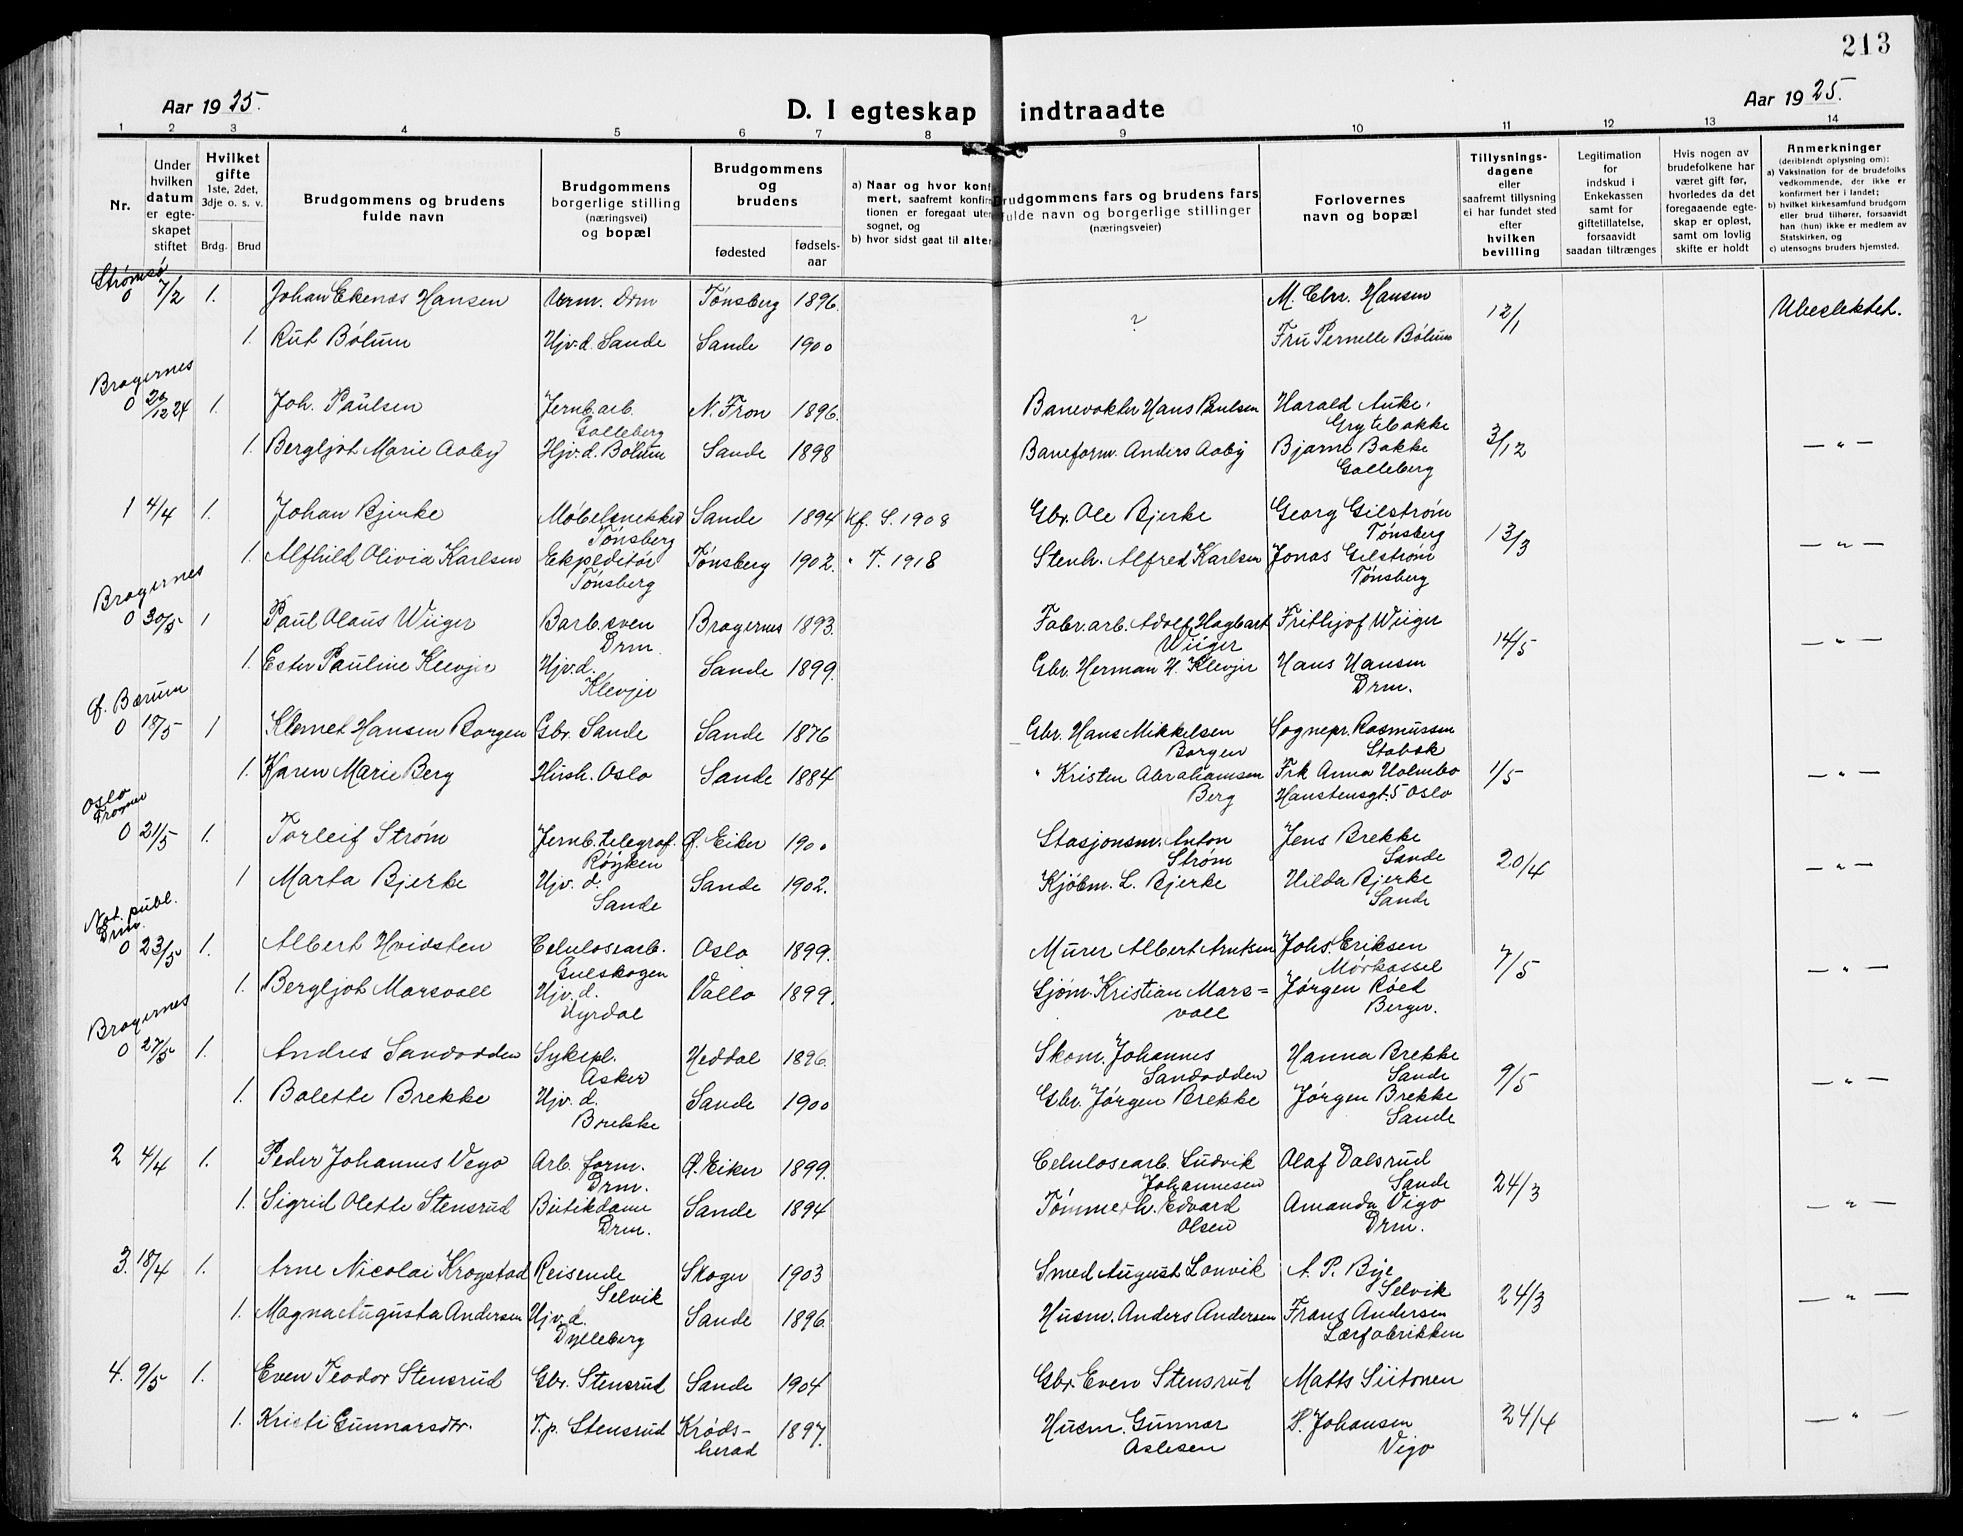 213
Aar 1925.
D. I egteskap indtraadte
Aar 1925.
1 2 3 4 5 6 7 8 9 10 11 12 13 14
Nr.
Under hvilken datum er egteskapet stiftet
Hvilket gifte
1ste, 2det, 3dje o. s. v.
Brdg. Brud
Brudgommens og brudens fulde navn
Brudgommens borgerlige stilling (næringsvei) og bopæl
Brudgommens og brudens
fødested
fødselsaar
a) Naar og hvor konf
mert, saafremt konfir
tionen er foregaat uten
sognet, og
b) hvor sidst gaat til alter
Brudgommens fars og brudens fars
fulde navn og borgerlige stillinger
(næringsveier)
Forlovernes navn og bopæl
Tillysningsdagene
eller
saafremt tillysning
ei har fundet sted
efter
hvilken
bevilling
Legitimation
for
indskud i
Enkekassen
samt for
giftetillatelse,
forsaavidt
saadan tiltrænges
Hvis nogen av
brudefolkene har
været gift før,
hvorledes da det
foregaaende egteskap er opløst,
samt om lovlig
skifte er holdt
Anmerkninger
(deriblendt oplysning om):
a) Vaksination for de brudefolks
vedkommende, der ikke er
konfirmert her i landet;
b) hvilket kirkesamfund brudgom
eller brud tilhører, forsaavidt
han (hun) ikke er medlem av
Statskirken, og
c) utensogns bruders hjemsted.
Strømsø
0 7/2 1. Johan Ekenæs Hansen Verm. Drm Tønsberg 1896. ? M. Chr. Hansen 12/1 Ubeslektet.
1. Rut Bölum Hjv.d. Sande Sande 1900 Fru Pernelle Bölum
Bragernes
0 20/12 24 1. Joh. Paulsen Jernb.arb. Galleberg N. Fron 1896. Banevokter Hans Paulsen Harald Auke, Grytebakke 3/12 — " —
1. Bergljot Marie Aaby Hjv.d. Bölum Sande 1898 Baneform. Anders Aaby Bjarne Bakke Galleberg
1 4/4 1. Johan Bjerke Møbelsnekker Tønsberg Sande 1894 Kf. S. 1908 Gbr. Ole Bjerke Georg Gilstrøm Tønsberg 13/3 — " —
1. Alfhild Olivia Karlsen Ekspeditør Tønsberg Tønsberg 1902. " T. 1918 Stenh. Alfred Karlsen Jonas Gilstrøm Tønsberg
Bragernes
0 30/5 1 Paul Olaus Wiiger Barb.sven Drm. Bragernes 1893. Fabr.arb. Adolf Hagbart Wiiger Frithjof Wiiger 14/5 — " —
1. Ester Pauline Klevjer Hjv.d. Klevjer Sande 1899. Gbr. Herman H. Klevjer Hans Hansen Drm.
Ø. Bærum
0 18/5 1 Klemet Hansen Borgen Gbr. Sande Sande 1876 Gbr. Hans Mikkelsen Borgen Sognepr. Rasmussen Stabæk 1/5 — " —
1. Karen Marie Berg Hush. Oslo Sande 1884 " Kristen Abrahamsen Berg Frk Anna Holmbo Hanstensgt. 5 Oslo
Oslo
Frogner
0 21/5 1. Torleif Strøm Jernb.telegraf. Røyken Ø. Eiker 1900 Stasjonsm. Anton Strøm Jens Brekke Sande 20/4 — " —
1 Marta Bjerke Hjv. d. Sande Sande 1902. Kjöbm. L. Bjerke Hilda Bjerke Sande
Not. publ.
Drm.
0 23/5 1. Albert Hvidsten Celulosearb. Gulskogen Oslo 1899. Murer Albert Arntsen Johs. Eriksen Mörkassel 7/5 — " —
1. Bergljot Marsvoll Hjv.d. Nyrdal Vallø 1899. Sjöm. Kristian Marsvoll Jørgen Røed Berger.
Bragernes
0 27/5 1. Andres Sandodden Sykepl. Asker Heddal 1896. Skom. Johannes Sandodden Hanna Brekke Sande 9/5 — " —
1. Bolette Brekke Hjv. d. Brekke Sande 1900 Gbr. Jørgen Brekke Jørgen Brekke Sande
2 4/4 1. Peder Johannes Vego Arb. form. Drm. Ø. Eiker 1899. Celulosearb. Ludvik Johannesen Olaf Dalsrud Sande 24/3 — " —
1. Sigrid Olette Stensrud Butikdame Drm. Sande 1894 Tømmerh. Edvard Olsen Amanda Vigo Drm.
3. 18/4 1. Arne Nicolai Krogstad Reisende Selvik Skoger 1903 Smed August Lonvik A. P. Bye Selvik 24/3 — " —
1. Magna Augusta Andersen Hjv.d. Dylleberg Sande 1896. Husm. Anders Andersen Frans Andersen Lærfabrikken
4. 9/5 1. Even Teodor Stensrud Gbr. Stensrud Sande 1904 Gbr. Even Stensrud Matts Siitonen 24/4 — " —
1. Kristi Gunnarsdtr. T.p. Stensrud Krødsherad 1897. Husm. Gunnar Aslesen P. Johansen Vigo